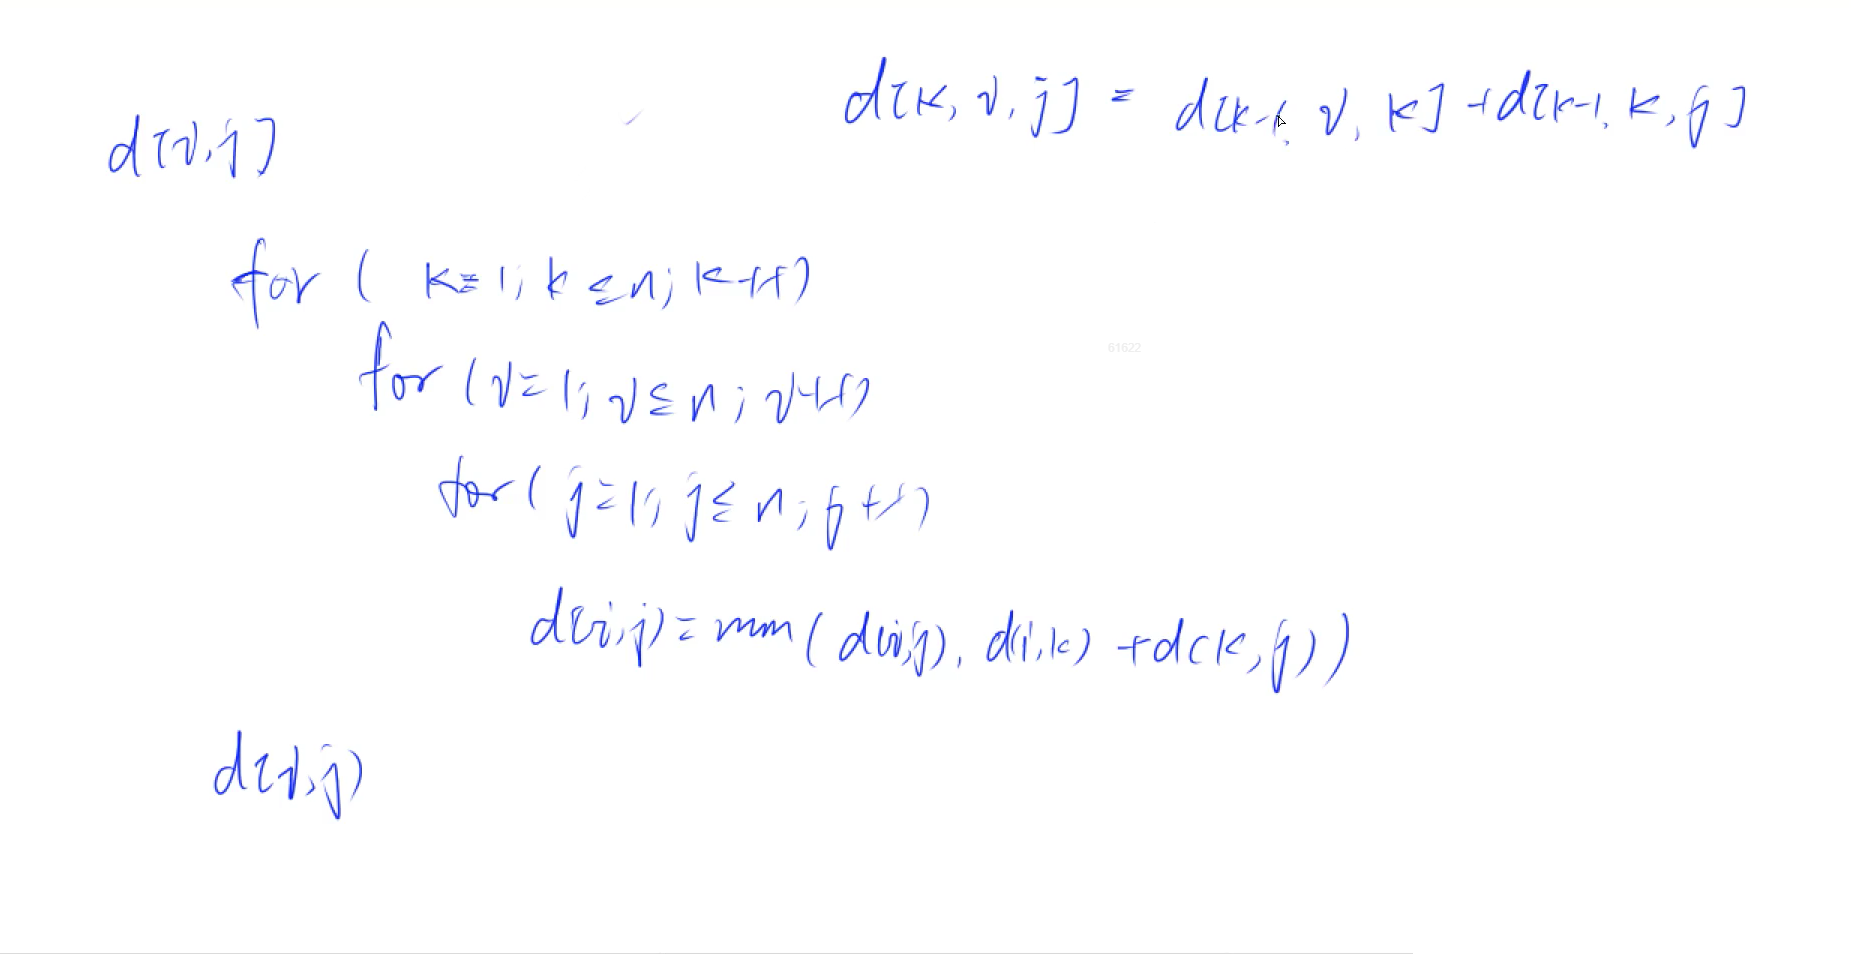 d[k, i, j] = d[k-1, i, k] + d[k-1, k, j]
d[i, j]
for ( k=1; k ≤ n; k++)
for (i=1; i ≤ n; i++)
61622
for ( j=1; j ≤ n; j++)
d(i,j) = min( d(i,j), d(i,k) + d(k,j))
d[i,j)